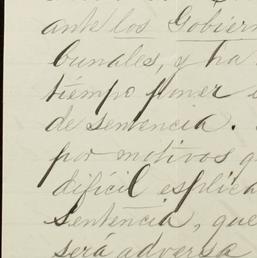 ante los Gobier
bunales, y ha
tiempo poner
de sentencia.
por motivos q
difícil esplica
sentencia, que
sera adversa